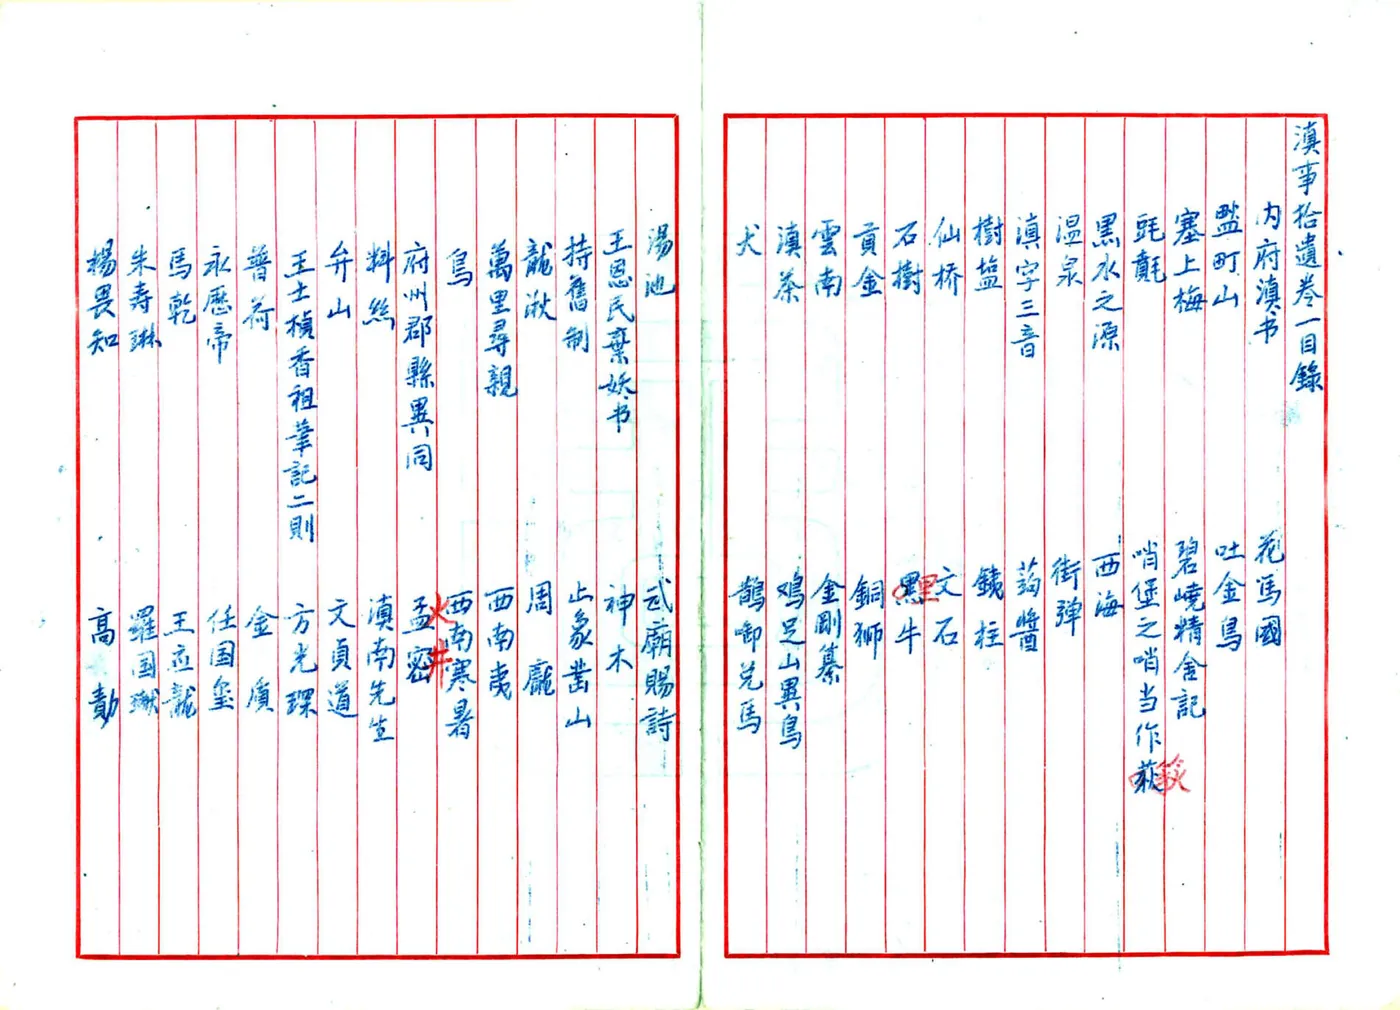 滇事拾遺卷一目錄
内府滇书
花馬國
盐町山
吐金鳥
塞上梅
碧嶢精舍記
毦氎
哨堡之哨当作菽
餤
黑水之源
西海
溫泉
街彈
滇字三音
蒟醬
樹盐
鐵柱
仙桥
文石
石樹
黑牛
犀
貢金
銅獅
雲南
金剛纂
滇茶
鸡足山異鳥
犬
鵲啣兑馬
湯池
武廟賜詩
王恩民棄妖书
神木
持舊制
止象凿山
龍湫
周龐
萬里尋親
西南夷
鳥
西南寒暑
火井
府州郡縣異同
孟密
料絲
滇南先生
弁山
文貞道
王士楨香祖筆記二則
方光琛
普荷
金質
永歷帝
任国璽
馬乾
王应龍
朱寿琳
羅国瓛
楊畏知
高勣